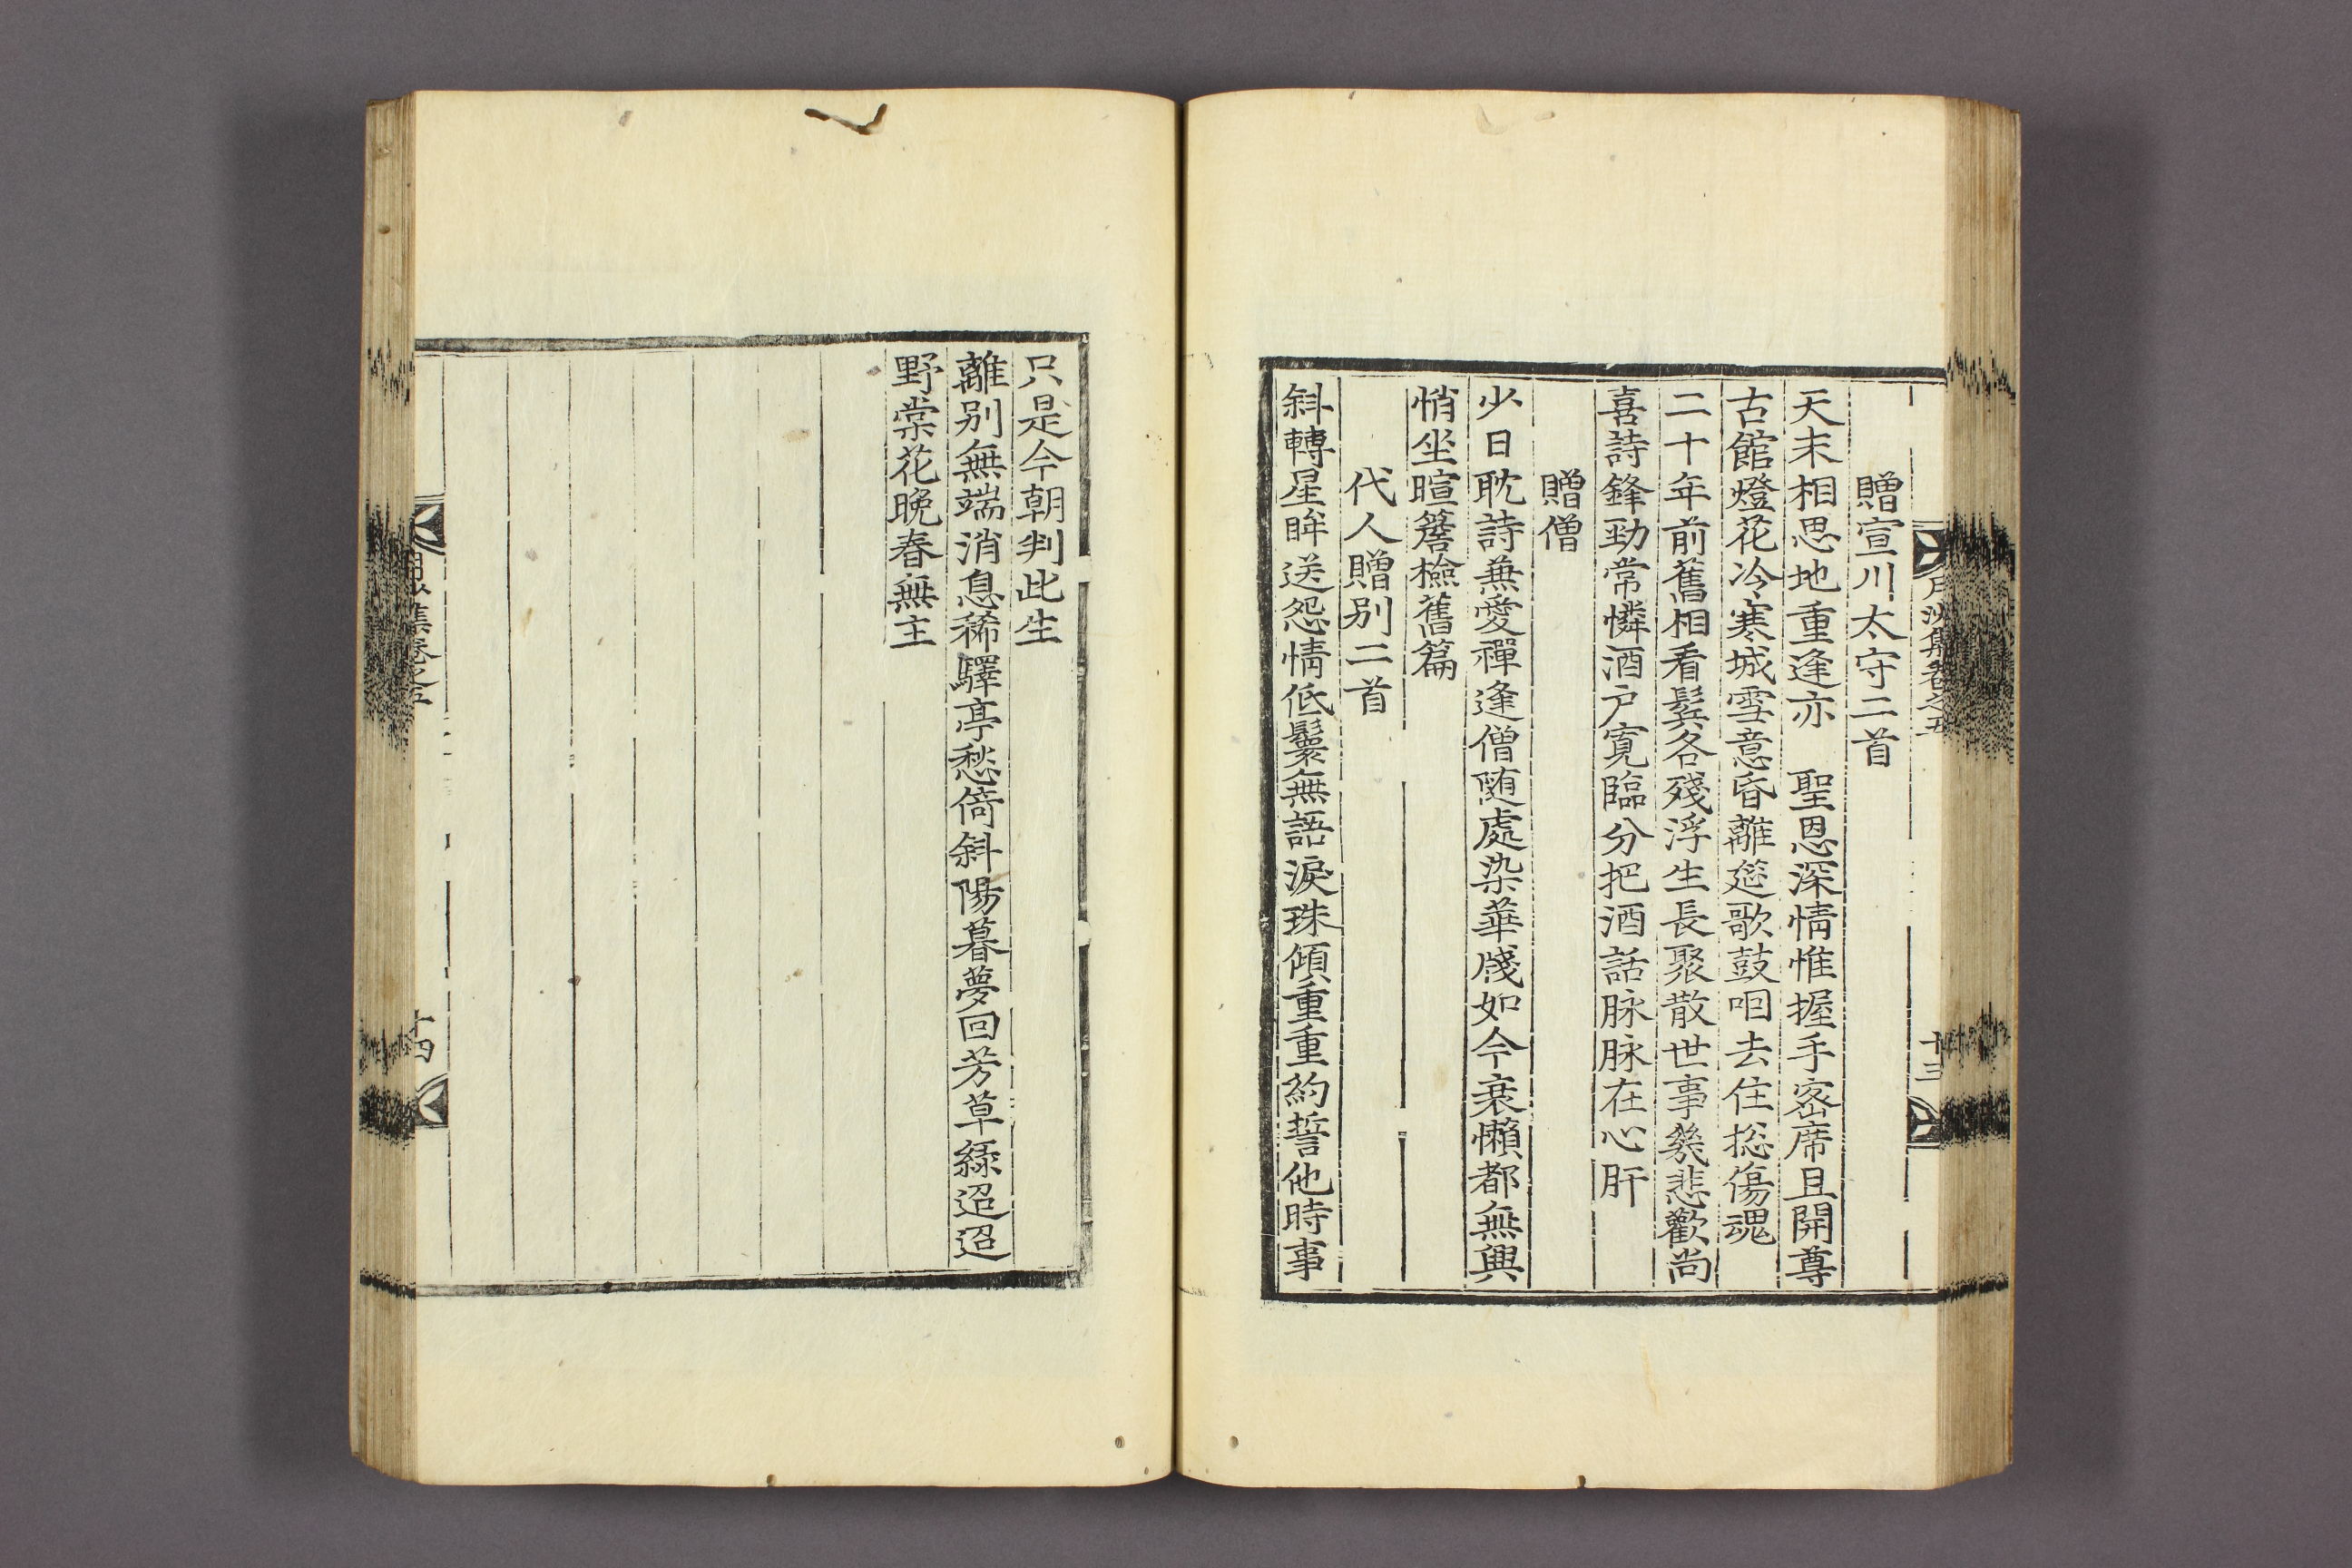 月沙集卷之五
十三
贈宣川太守二首
天末相思地重逢亦　聖恩深情惟握手密席且開尊
古館燈花冷寒城雪意昏離筵歌鼓咽去住捴傷魂
二十年前舊相看鬂各殘浮生長聚散世事幾悲歡尚
喜詩鋒勁常憐酒户寬臨分把酒話脉脉在心肝
贈僧
少日耽詩兼愛禪逢僧随處染華牋如今衰懶都無興
悄坐暄簷檢舊篇
代人贈别二首
斜轉星眸送怨情低鬟無語淚珠傾重重約誓他時事
只是今朝判此生
離别無端消息稀驛亭愁倚斜陽暮夢回芳草綠迢迢
野棠花晚春無主
集卷之五
十四